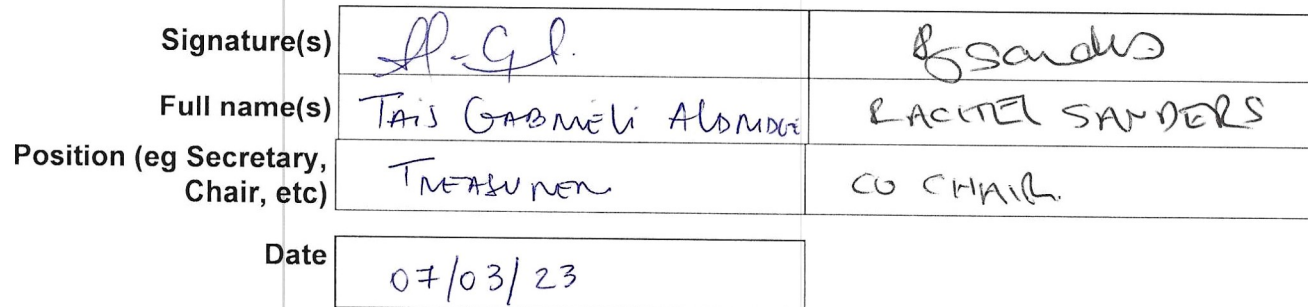 Signature(s) Rsanders
Full name(s) TAIS GABRIELI ALDRIDGE RACHEL SANDERS
Position (eg Secretary,
Chair, etc) TREASURER CO CHAIR.
Date 07/03/23